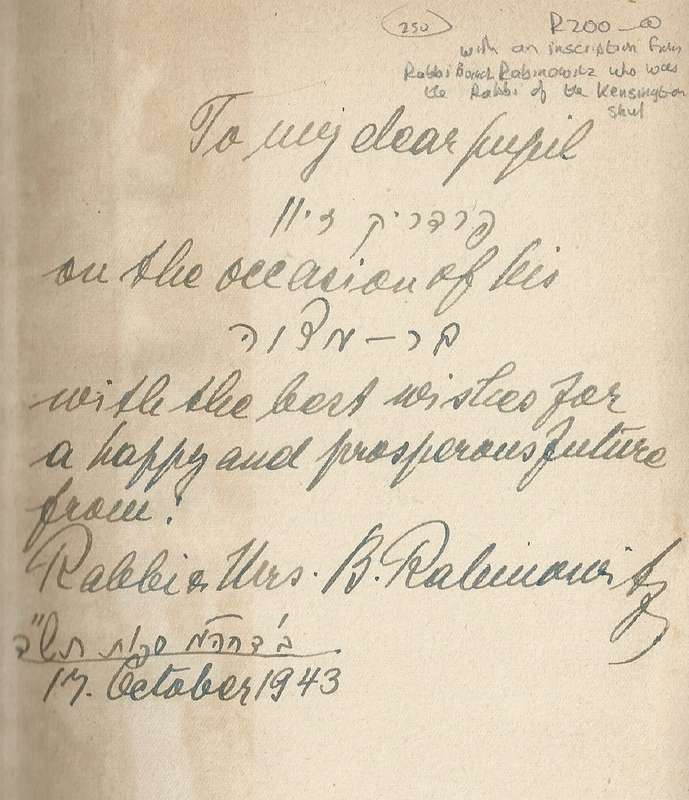 250 R200-00
with an inscription from
Rabbi Rabinowitz who was
the Rabbi of the Kensington
shul
To my dear pupil
פרדריק
on the occasion of his
בר – מצוה
with the best wishes for
a happy and prosperous future
from:
Rabbi & Mrs. B. Rabinowitz
ב' דחהמ סכות תש"ד
17. October 1943